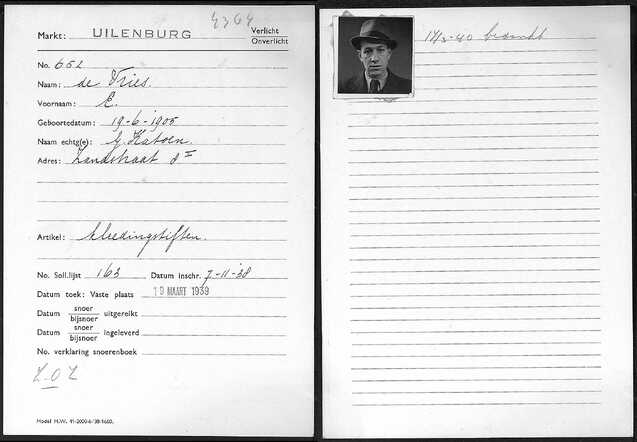 4364
Markt: UILENBURG Verlicht
Onverlicht
No. 652
Naam: de Vries.
Voornaam: E.
Geboortedatum: 19-6-1905
Naam echtg(e): G. Katoen.
Adres: Zandstraat 8 I
Artikel:
No. Soll.lijst 163 Datum inschr. 7-11-'38
Datum toek: Vaste plaats 19 MAART 1939
Datum snoer
bijsnoer uitgereikt
Datum snoer
bijsnoer ingeleverd
No. verklaring snoerenboek
Model M.W. 41-2000-6-'38-1660.
-40